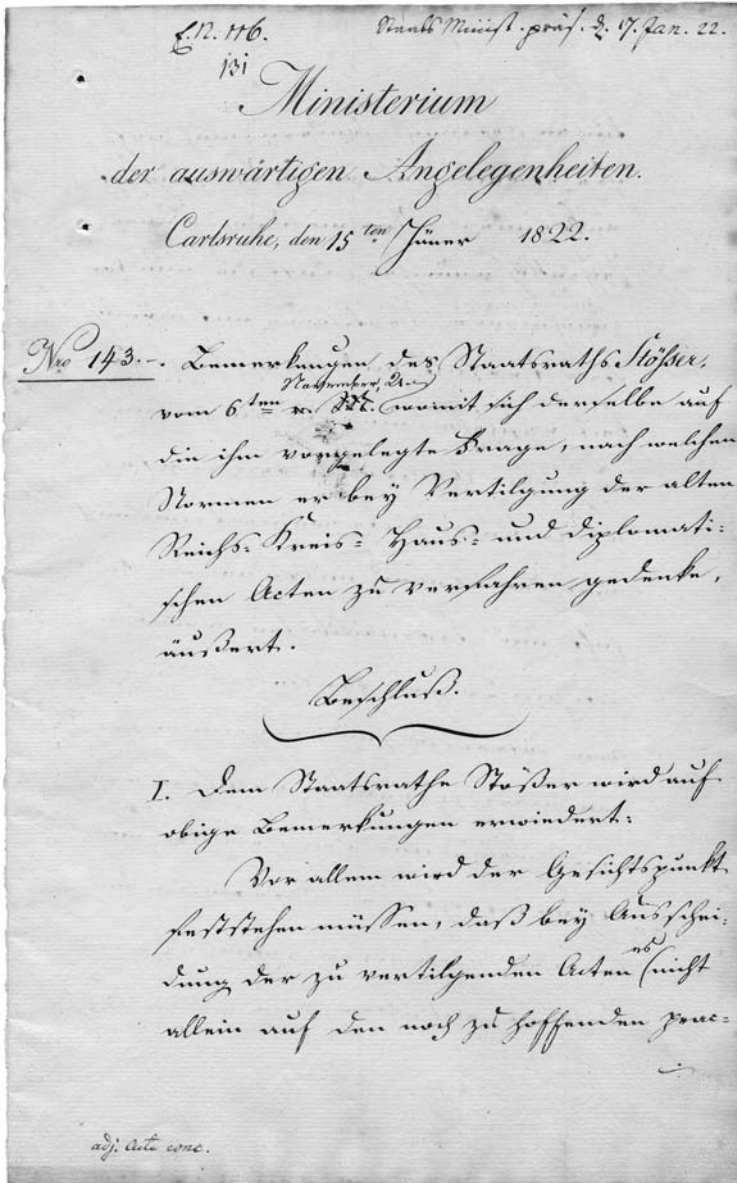 E.N. 116.
Staats Minist. präs. d. 17. Jan. 22.
131
Ministerium
der auswärtigen Angelegenheiten.
Carlsruhe, den 15ten Jäner 1822.
Nro 143.-. Bemerkungen des Staatsraths Stößer,
November,
vom 6ten womit sich derselbe auf
die ihm vorgelegte Frage, nach welchen
Normen er bey Vertilgung der alten
Reichs- Kreis- Haus- und diplomati-
schen Acten zu verfahren gedenke,
äußert.
Beschluß.
I. Dem Staatsrathe Stößer wird auf
obige Bemerkungen erwiedert:
Vor allem wird der Gesichtspunkt
feststehen müssen, daß bey Ausschei-
dung der zu vertilgenden Acten es (nicht
allein auf den noch zu hoffenden prac-
adj. Acta conc.